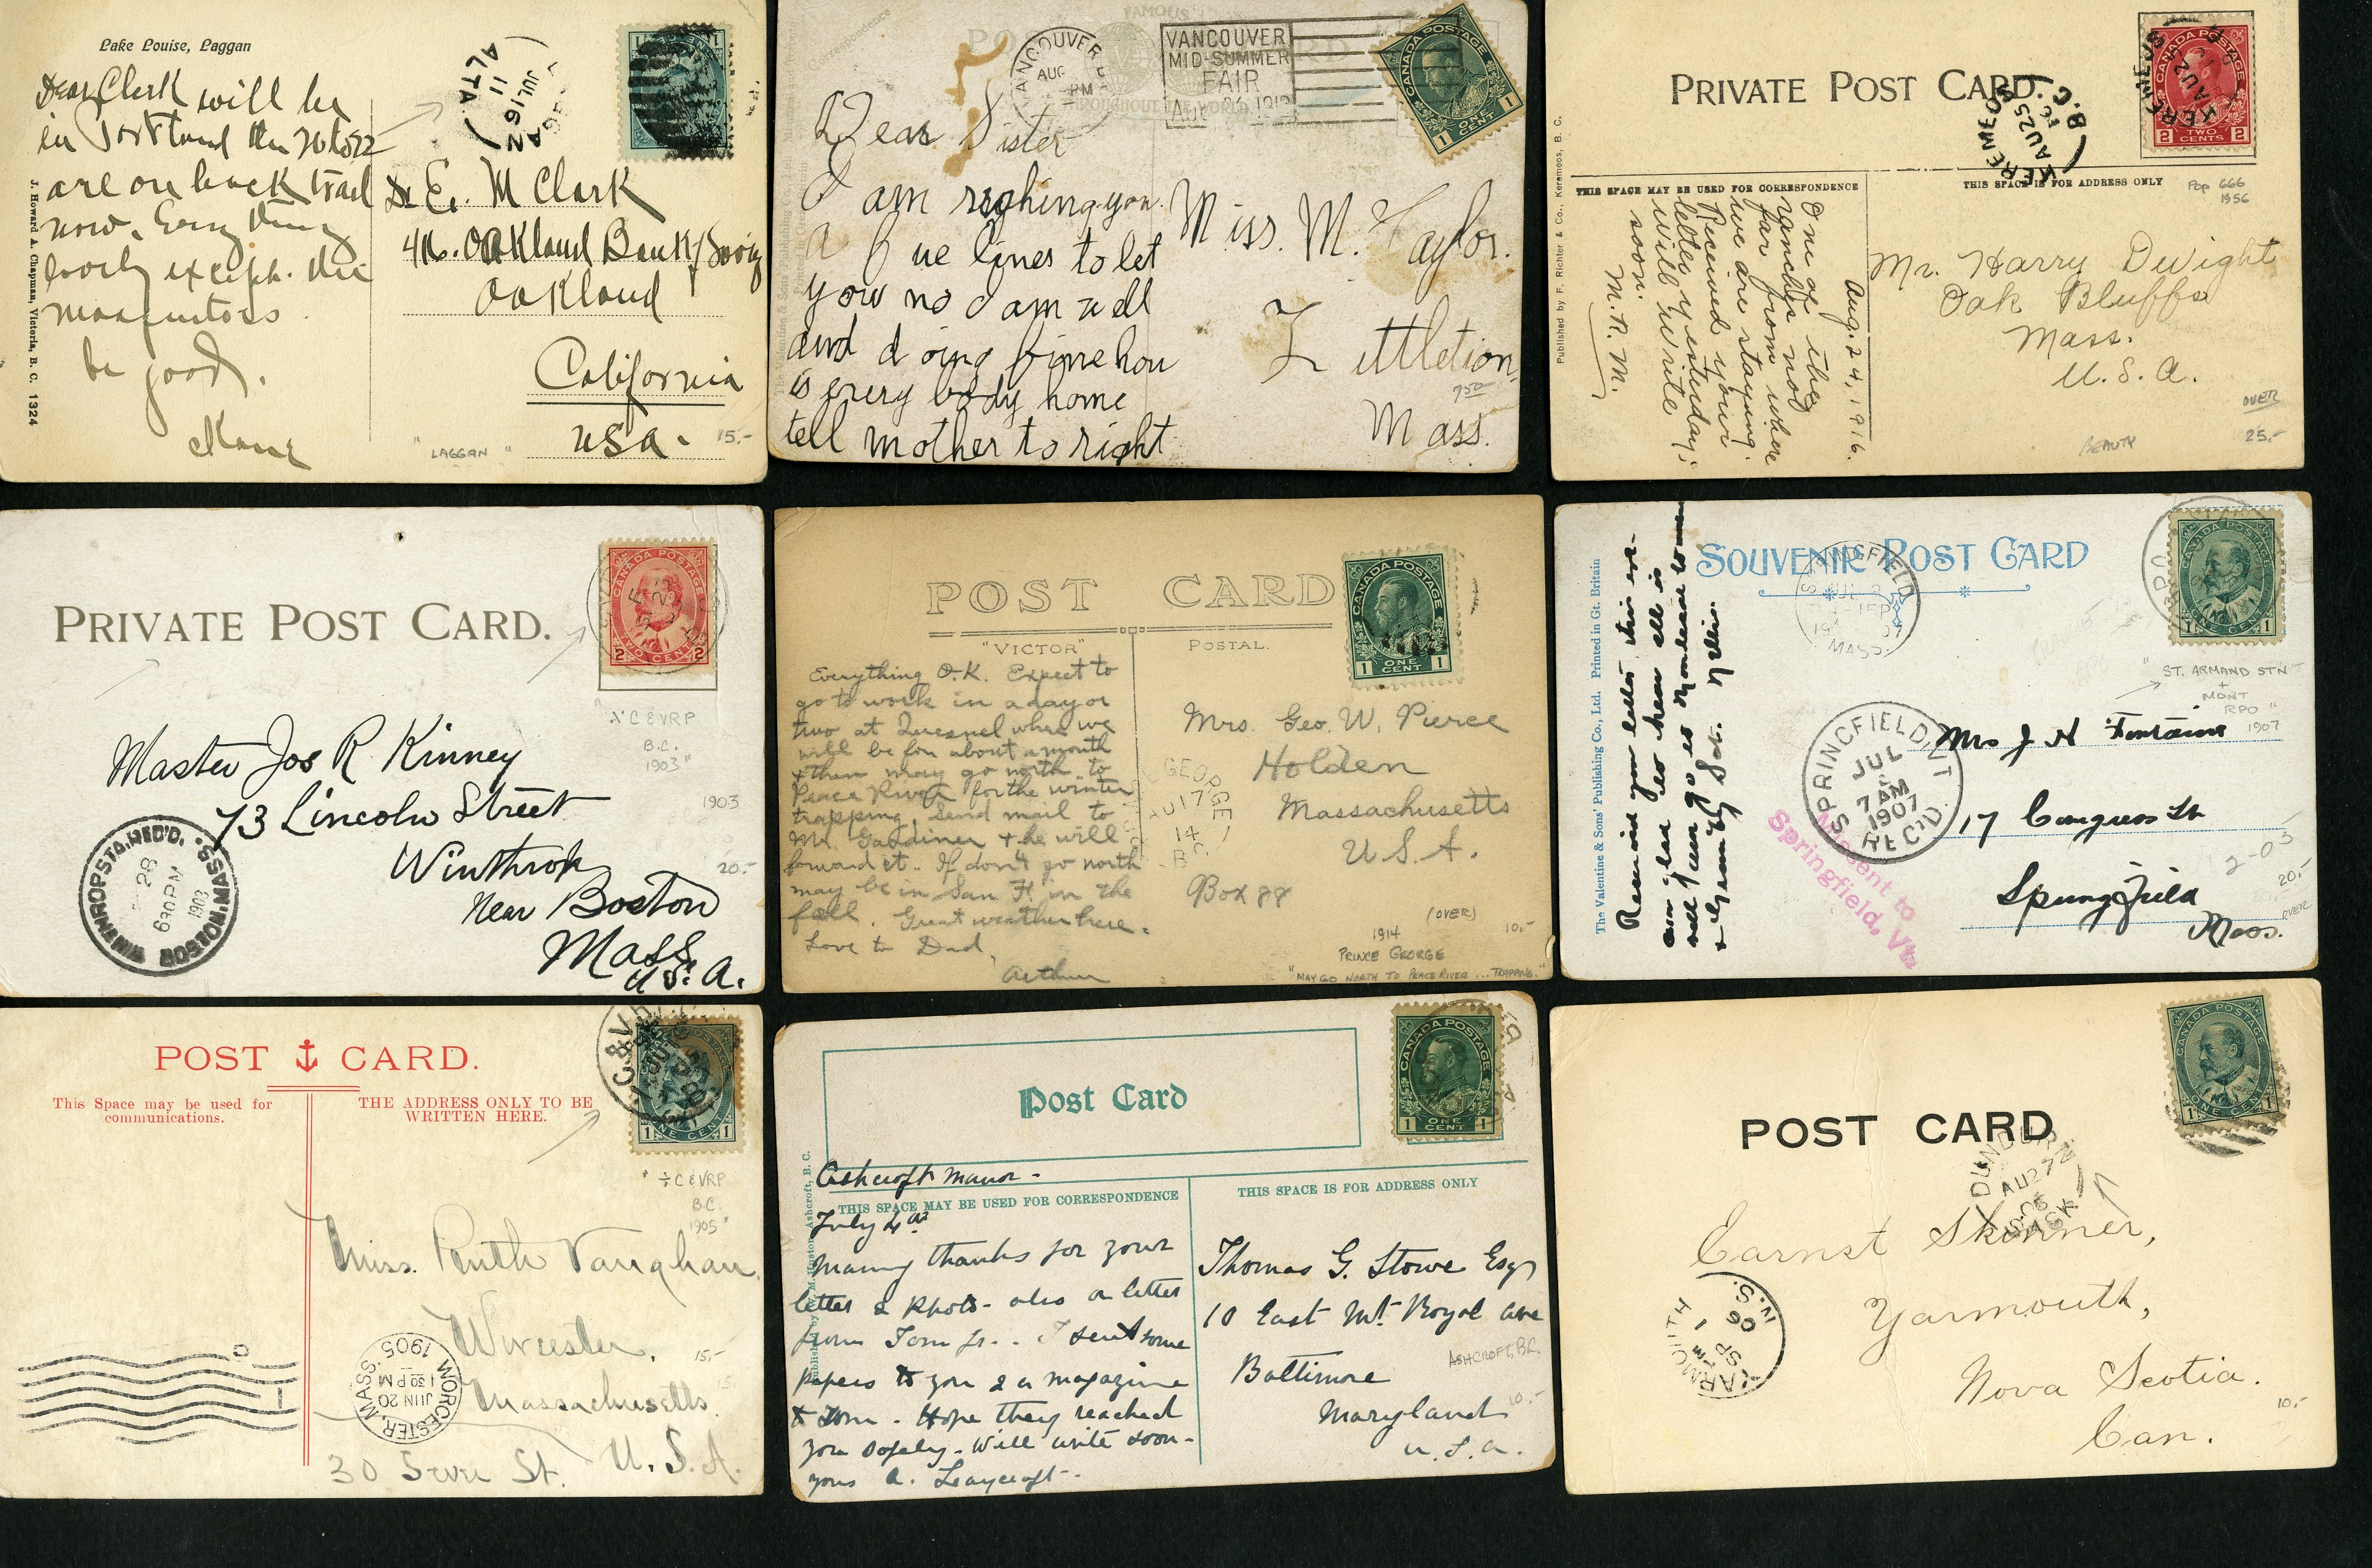 Lake Louise, Laggan
Dear Clark will be
in Portland the 20 to 22
are on back trail
now. Every thing
lovely except. the
mosquitoes
be good.
J. Howard A. Chapman, Victoria, B. C. 1324
LAGGAN
JUL 16
11
ALTA.
Dr E. M Clark
416. Oakland Bank/Saving
Oakland
California
USA.
"LAGGAN"
15.-
Correspondence
FAMOUS
THROUGHOUT THE WORLD
VANCOUVER
AUG
PM
VANCOUVER
MID-SUMMER
FAIR
CANADA POSTAGE
1 ONE CENT 1
Dear Sister
I am righing you
a few lines to let
you no I am well
and doing fine how
is every body home
tell mother to right
Miss. M. Taylor.
Littletion
750
Mass.
PRIVATE POST CARD.
CANADA POSTAGE
2 TWO CENTS 2
KEREMEOS
AU 25
16
B.C.
THIS SPACE MAY BE USED FOR CORRESPONDENCE
THIS SPACE IS FOR ADDRESS ONLY
Pop 666
1956
Published by F. Richter & Co., Keremeos, B. C.
Aug. 24, 1916.
One of the
ranches not
far from where
we are staying.
Received your
letter yesterday;
will write
soon.
M. P. M.
Mr. Harry Dwight
Oak Bluffs
Mass.
U. S. A.
OVER
BEAUTY
25.-
PRIVATE POST CARD.
CANADA POSTAGE
2 TWO CENTS 2
"C & VRP
B.C.
1903"
Master Jos R Kinney
73 Lincoln Street
Winthrop
Near Boston
Mass.
U.S.A.
1903
20.-
WINTHROP STA. REC'D.
28
630 PM
1903
WINDSOR MASS.
POST CARD
"VICTOR" POSTAL.
CANADA POSTAGE
1 ONE CENT 1
Everything O.K. Expect to
go to work in a day or
two at Quesnel where we
will be for about a month
& then may go north to
Peace River for the winter
trapping. Send mail to
Mr. Gardiner & he will
forward it. If don't go north
may be in San F. in the
fall. Great weather here.
Love to Dad,
Arthur
GEORGE
AU 17
14
B.C.
Mrs. Geo. W. Pierce
Holden
Massachusetts
U. S. A.
Box 88
(OVER)
1914
PRINCE GEORGE
"MAY GO NORTH TO PEACE RIVER ... TRAPPING."
10.-
SOUVENIR POST CARD
The Valentine & Sons' Publishing Co., Ltd. Printed in Gt. Britain
Received your letter this eve-
am glad to hear all is
Nellie.
SPRINGFIELD
MASS.
SPRINGFIELD, VT
JUL
7 AM
1907
REC'D.
Missent to
Springfield, Vt.
CANADA POSTAGE
1 ONE CENT 1
"ST. ARMAND STN
+
MONT
RPO"
1907
Mrs J H Fontaine
17 Congress St
Springfield
Mass.
2-03
20.-
OVER
POST CARD.
This Space may be used for
communications.
THE ADDRESS ONLY TO BE
WRITTEN HERE.
C. & V.
1 ONE CENT 1
"C & VRP
B.C.
1905"
Miss. Ruth Vaughan
Worcester,
Massachusetts.
30 Sever St. U. S. A.
15.-
WORCESTER, MASS.
JUN 20
1 30 PM
1905
Post Card
CANADA POSTAGE
1 ONE CENT 1
Ashcroft Manor-
THIS SPACE MAY BE USED FOR CORRESPONDENCE
THIS SPACE IS FOR ADDRESS ONLY
July 4th
Many thanks for your
letter & photo- also a letter
from Tom Jr.. I sent some
papers to you & a magazine
to Tom - Hope they reached
you safely- Will write soon-
yours A. Leaycroft-
Thomas G. Stowe Esq
10 East Mt. Royal Ave
Baltimore
Maryland
U. S. A.
ASHCROFT, B.C.
10.-
POST CARD
CANADA POSTAGE
1 ONE CENT 1
DUNDURN
AU 27
06
SASK
Earnst Skinner,
Yarmouth,
Nova Scotia.
Can.
YARMOUTH
SP 1
06
N.S.
10.-